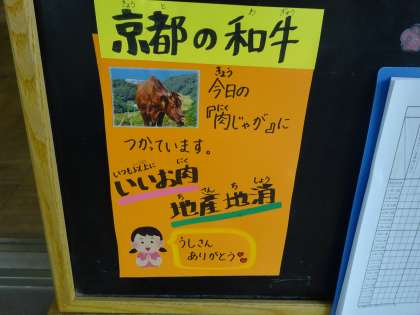 京都の和牛
きょうとのわぎゅう
今日の
きょう
『肉じゃが』に
にく
つかっています。
いつも以上に
いいお肉
にく
地産地消
ちさんちしょう
うしさん
ありがとう